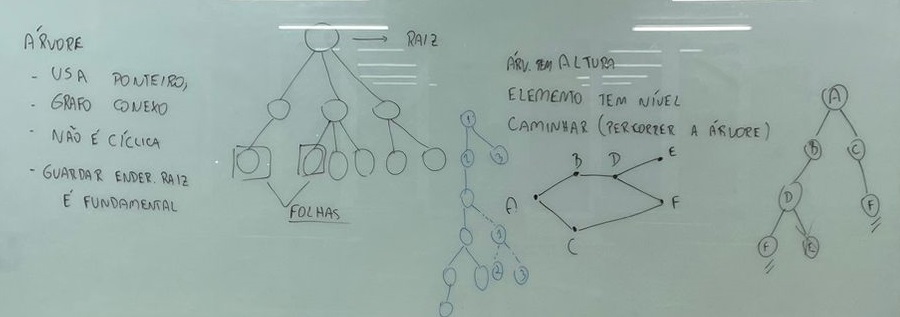 ÁRVORE
- USA PONTEIRO,
- GRAFO CONEXO
- NÃO É CÍCLICA
- GUARDAR ENDER. RAIZ
É FUNDAMENTAL
RAIZ
FOLHAS
1
2
3
1
2
3
ÁRV. TEM ALTURA
ELEMENTO TEM NÍVEL
CAMINHAR (PERCORRER A ÁRVORE)
B D E
A F
C
A
B C
D F
F E